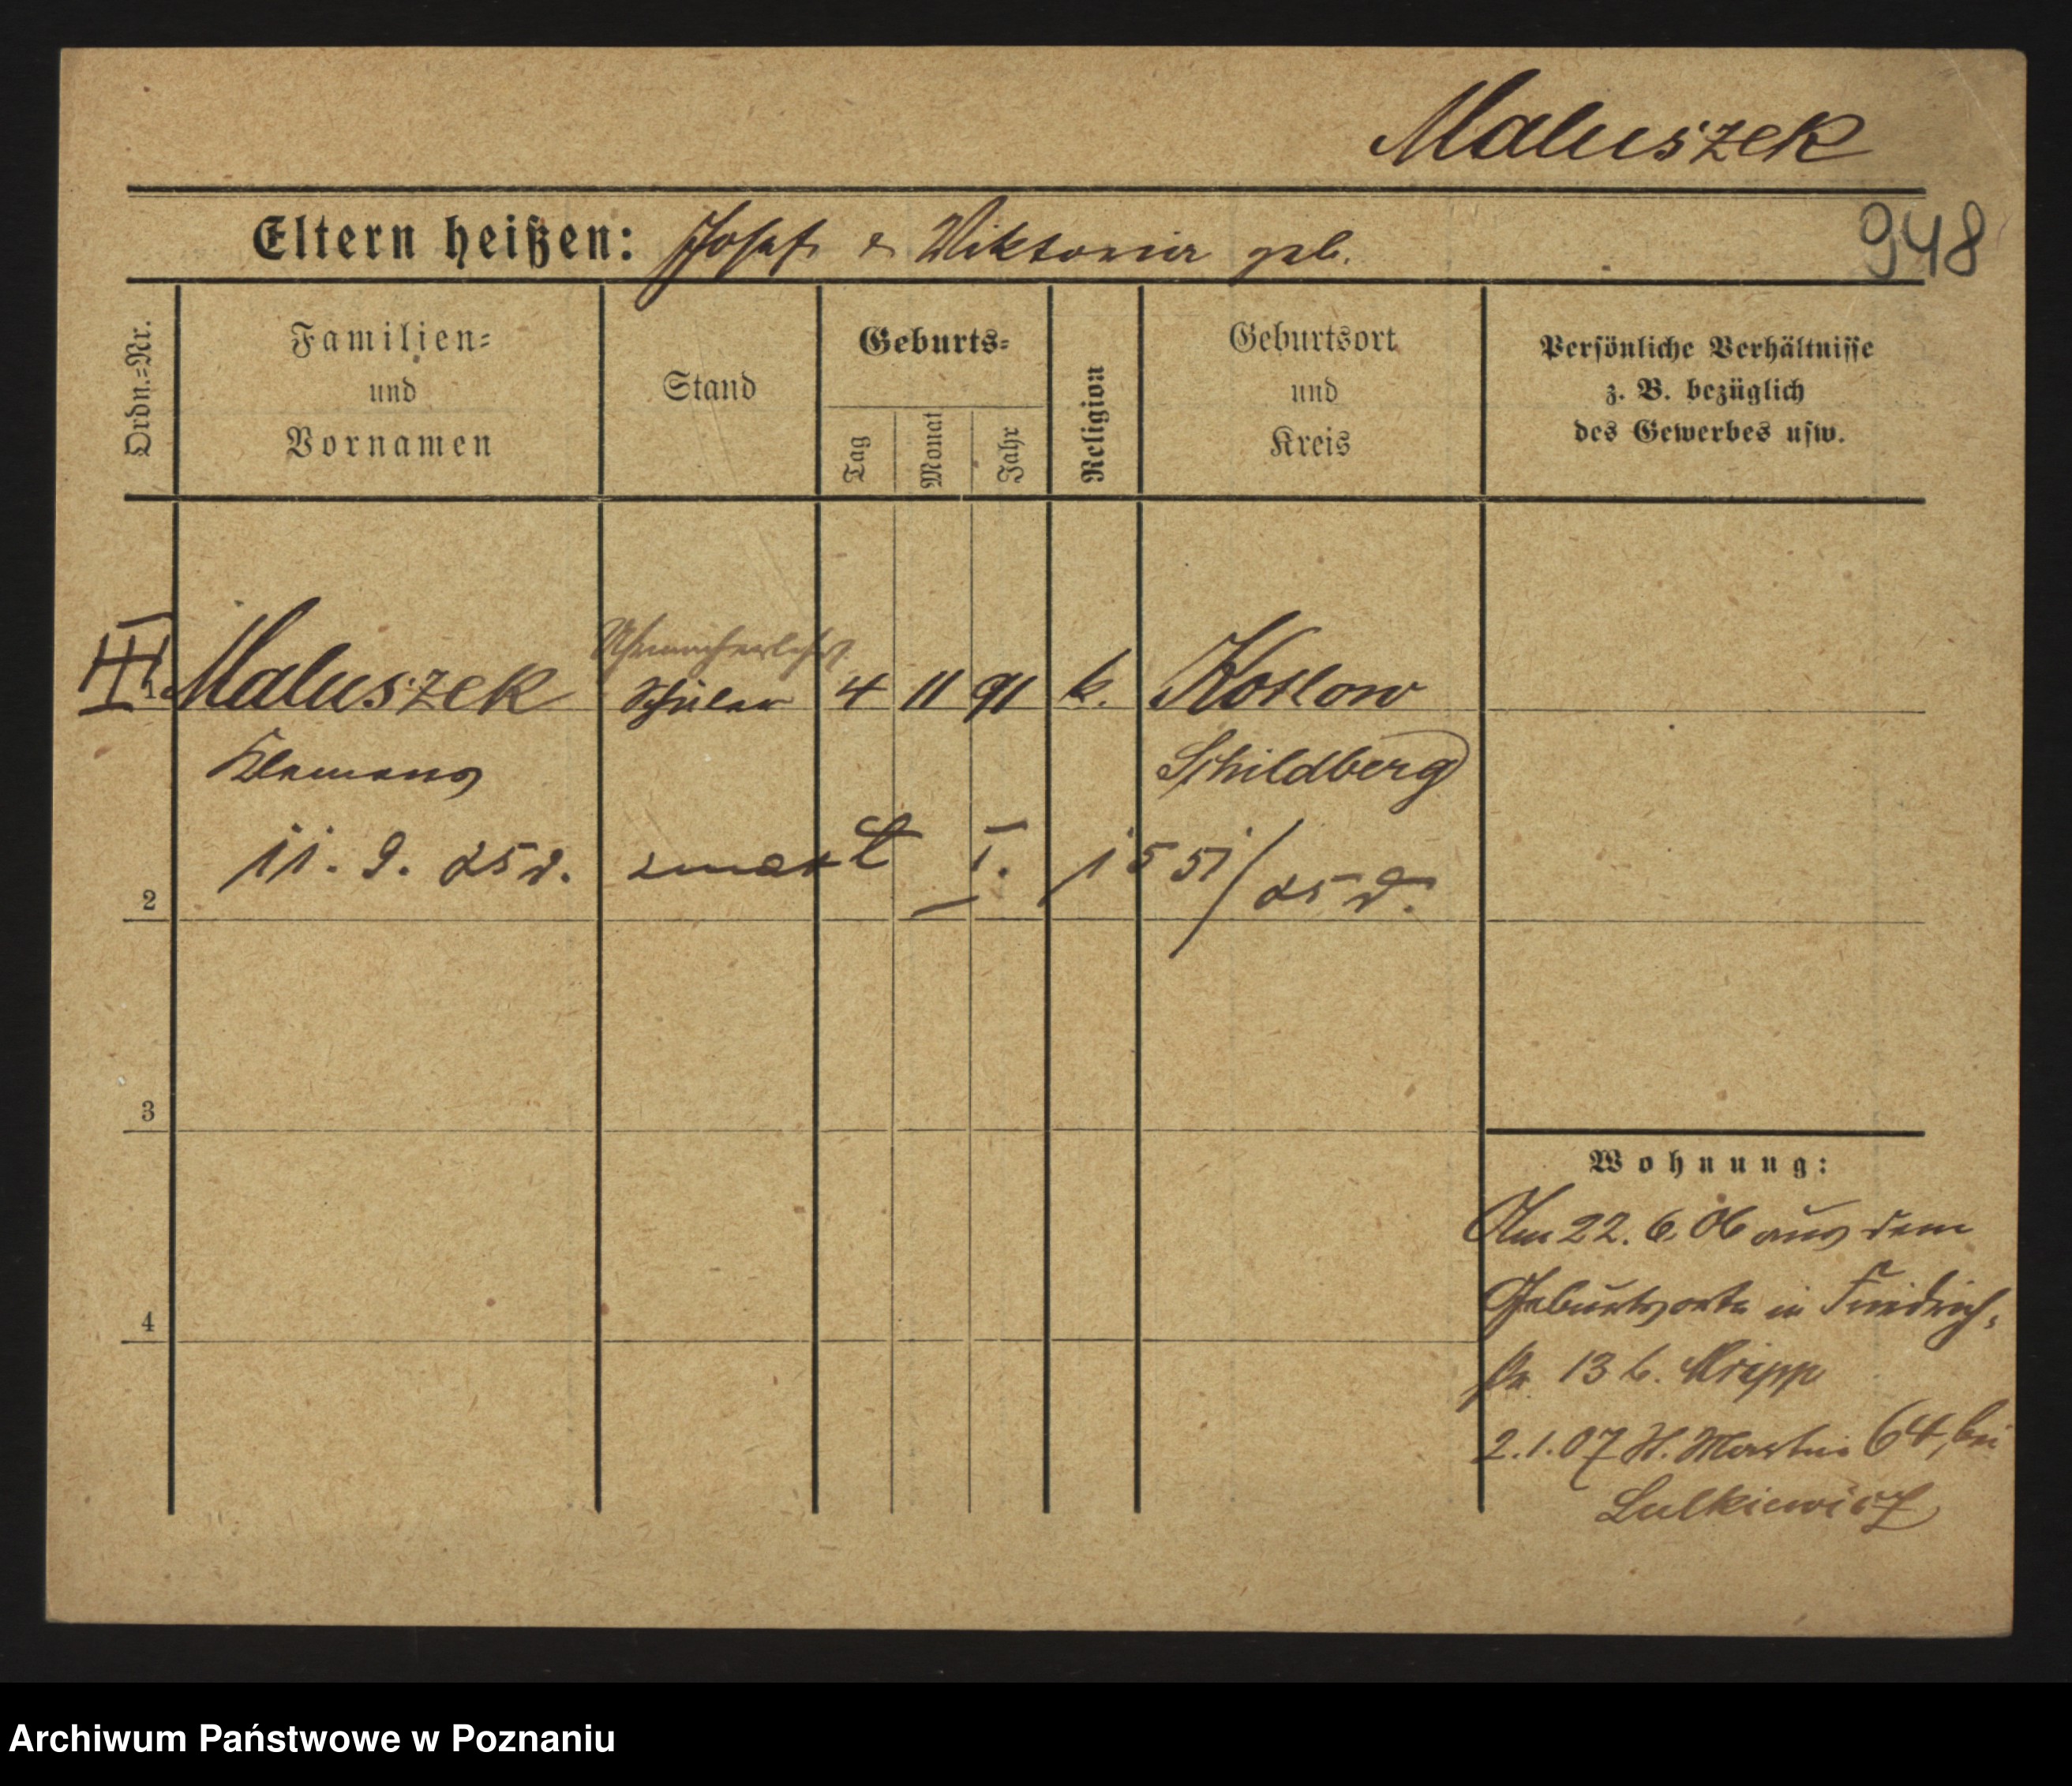 Maluszek
Eltern heißen: Josef & Viktoria geb.
948
Ordn.-Nr.
Familien-
und
Vornamen
Stand
Geburts-
Tag
Monat
Jahr
Religion
Geburtsort
und
Kreis
Persönliche Verhältnisse
z. B. bezüglich
des Gewerbes usw.
III
Uhrmacherlehrl.
1 Maluszek Schüler 4 11 91 k. Kotlow
Klemens Schildberg
11. 9. 25 r. zmarł I. 1551/25 r.
2
3
4
Wohnung:
Am 22. 6. 06 aus dem
Geburtsorte in Friedrich-
str. 13 b.
2. 1. 07 St. Martin 64, bei
Lulkiewicz
Archiwum Państwowe w Poznaniu